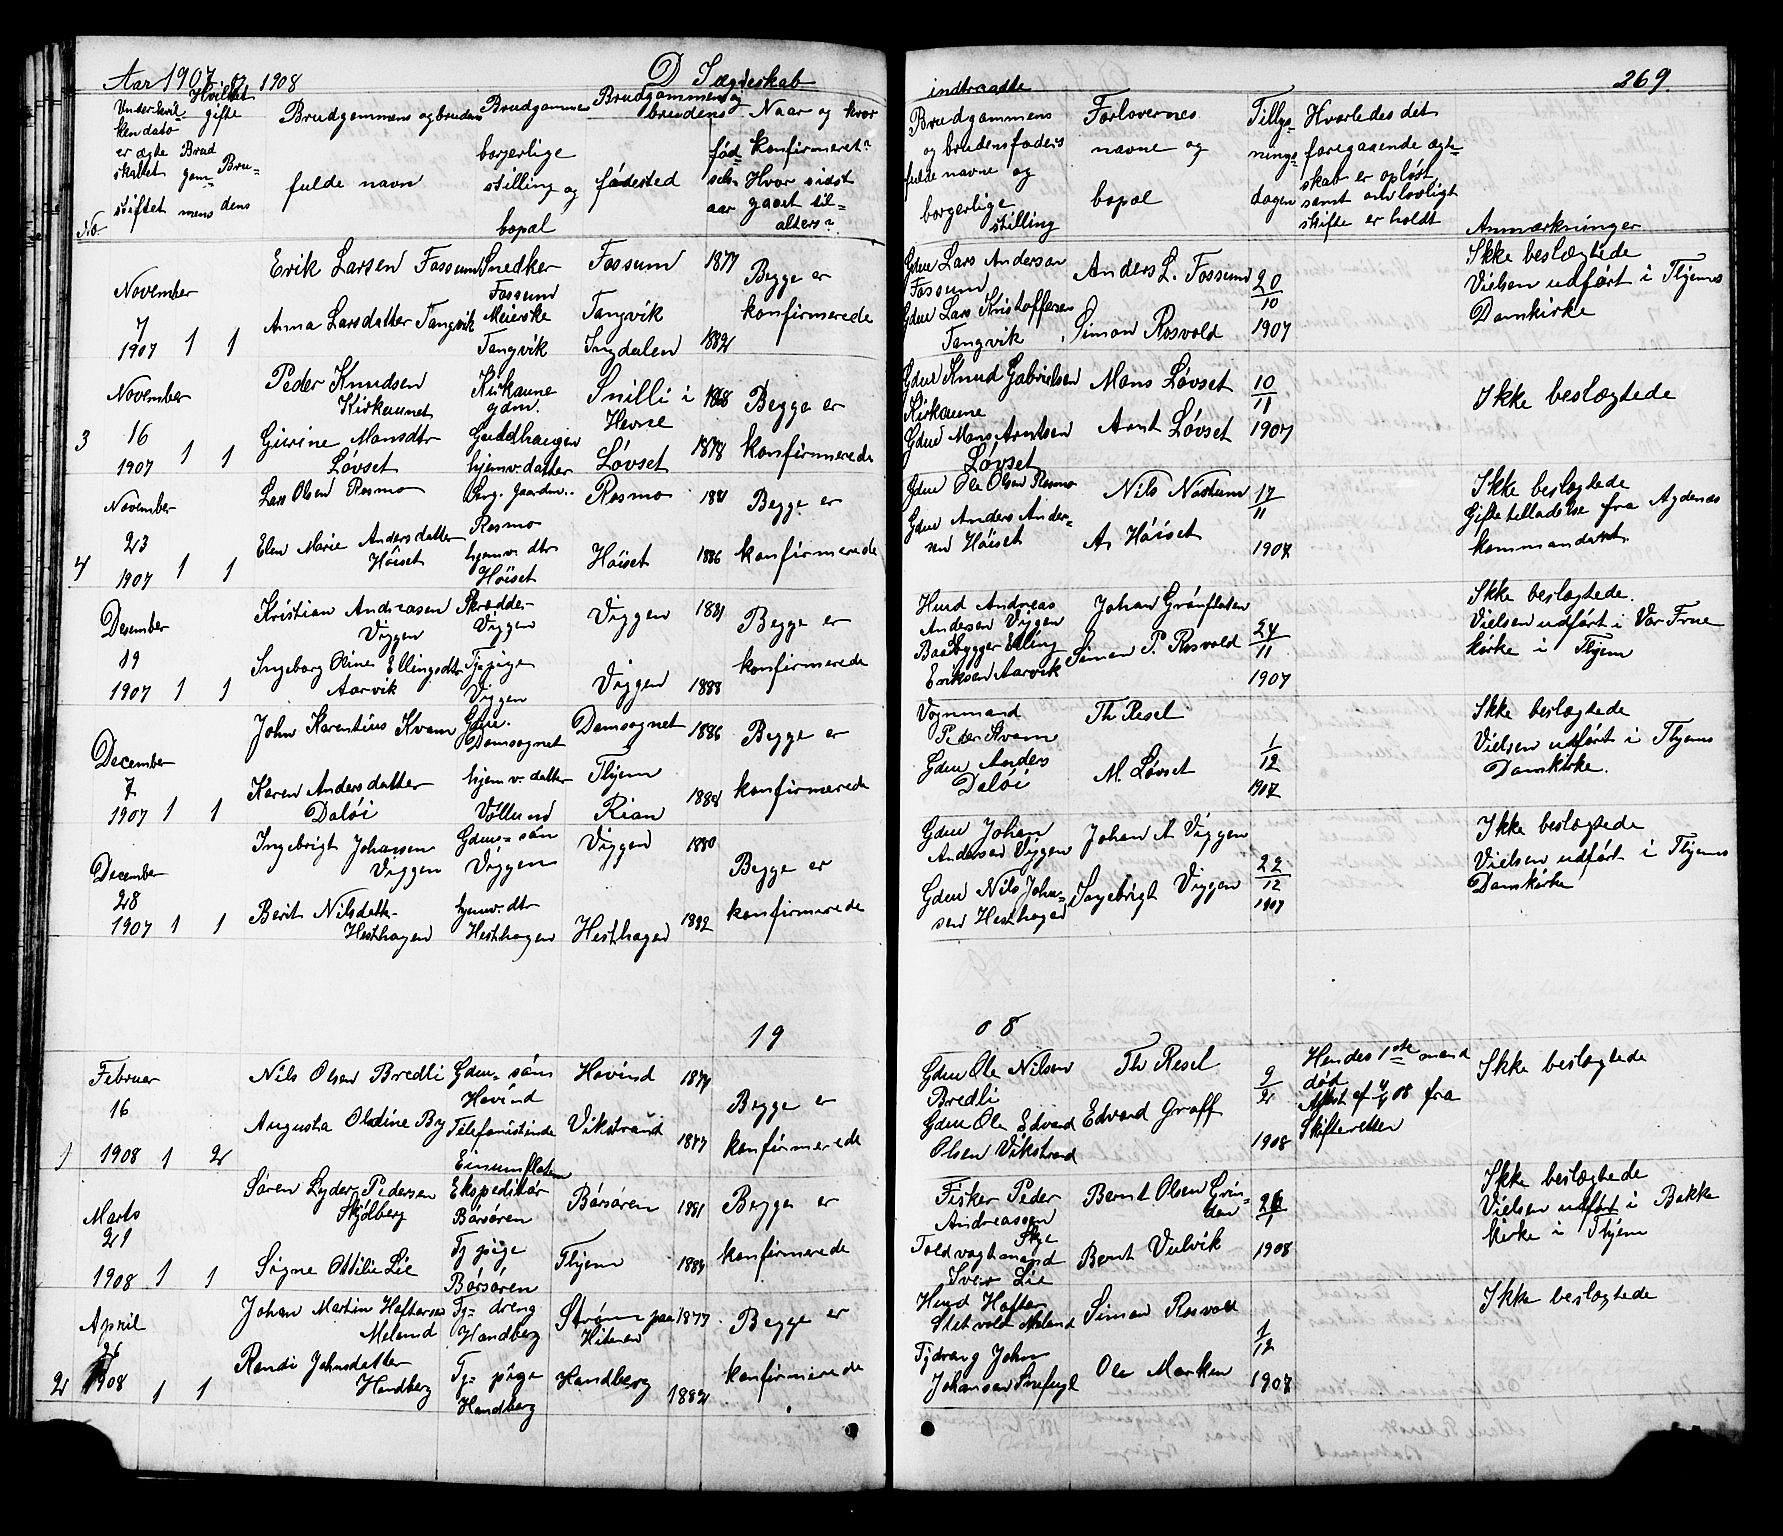 Aar 1907 og 1908 D I ægteskab
Underskvil- Hvilket Brudgommens og brudens Brudgommens Brudgommens og
ken dato gifte fulde navn borgerlige brudens Naar og hvor
er ægte Brud stilling og fødested fød- konfirmeret?
skabet gom- Bru- bopæl sels- Hvor sidst
stiftet mens dens aar gaaet til
No alters?
Erik Larsen Fossum Snedker Fossum 1877 Begge er
November Fossum konfirmerede
7 Anna Larsdatter Tangvik Meierske Tangvik
1907 1 1 Tangvik Ingdalen 1882
November Peder Knudsen Kirkaune Snilli i 1868 Begge er
Kirkaunet gdm. Hevne
3 16 Gurine Monsdtr Guldhaugen konfirmerede
1907 1 1 Løvset hjemv. datter Løvset 1878
November Lars Olsen Rosmo Rosmo 1881 Begge er
23 Elen Marie Andersdatter Rosmo
4 1907 1 1 Høiset hjemv. dtr Høiset 1886 konfirmerede
Høiset
Desember Kristian Andreasen Skrædder Viggen 1881 Begge er
Viggen Viggen
19 Ingeborg Oline Ellingsdtr Tj. pige konfirmerede
1907 1 1 Aarvik Viggen Viggen 1888
December John Karentius Kvam Domsognet Domsognet 1886 Begge er
7 Karen Andersdatter hjemv. datter Thjem konfirmerede
1907 1 1 Daløi Vollund Rian 1888
December Ingebrigt Johansen Gdms= søn Viggen 1880 Begge er
Viggen Viggen
28 Berit Nilsdatt- hjemv. dtr konfirmerede
1907 1 1 Hesthagen Hesthagen Hesthagen 1882
19
Februar Nils Olsen Bredli Gdm= søn Hovind 1874 Begge er
Hovind
16 Augusta Oldine By Telefonistinde Vikstrand konfirmerede
1 1908 1 2 Einumfloten 1877
Marts Søren Lyder Pedersen Ekspeditør Børsøren 1881 Begge er
Skjölberg Børsøren
21 Signe Ottilie Lie Tj pige Thjem konfirmerede
1908 1 1 Børsøren
April Johan Martin Haftorsen Tj= dreng Strøm paa 1877 Begge er
Meland Handberg Hiteren
26 Randi Johnsdatter Tj= pige Handberg konfirmerede
2 1908 1 1 Handberg Handberg 1882
indtraadte 269.
Brudgommens Forlovernes Tillys- Hvorledes det
og brudens faders navne og nings- foregaaende ægte-
fulde navne og bopæl dagen skab er opløst
borgerlige samt om lovligt
stilling skifte er holdt Anmærkninger
Gdm Lars Anderson Anders L. Fossum 20 Ikke beslægtede
Fossum 10 Vielsen udført i Thjems
Gdm Lars Kristoffersen Simon Rosvold 1907 Domkirke
Tangvik
Gdm Knud Gabrielsen Mons Løvset 10 Ikke beslægtede
Kirkaune 11
Gdm Mons Arntsen Arnt Løvset 1907
Løvset
Gdm Ole Olsen Rosmo Nils Nostum 17 Ikke beslægtede
Gdm Anders Ander- 11 Giftetilladelse fra Agdenes
sen Høiset A. Høiset 1907 kommandant.
Husd Andreas Johan Grønfloten Ikke beslægtede.
Andersen Viggen 24 Vielsen udført i Vor Frue
Baadbygger Elling Simon P. Rosvold 11 kirke i Thjem
Eriksen Aarvik 1907
Vognmand Th Resel Ikke beslægtede
Peder Kvam 1 Vielsen udført i Thjems
Gdm Anders M. Løvset 12 Domkirke.
Daløi 1907
Gdm Johan Johan A Viggen Ikke beslægtede
Andersen Viggen 22 Vielsen udført i Thjems
Gdm Nils John- Ingebrigt Viggen 12 Domkirke
sen Hesthagen 1907
08
Gdm Ole Nilsen Th Resel 9 Hendes 1ste mand Ikke beslægtede
Bredli 2 død
Gdm Ole Edvard Edvard Graff Attest af 08 fra
Olsen Vikstrand 1908 Skifteretten
Fisker Peder Bernt Olsen Grin- 26 Ikke beslægtede
Andreassen den 1 Vielsen udført i Bakke
Skje kirke i Thjem
Toldvagtmand Bernt Viulvik 1908
Sver Lie
Husd Haftor Simon Rosvold 1 Ikke beslægtede
Meland 12
Tjdreng John Ole Marken
Johansen Snefugl 1907